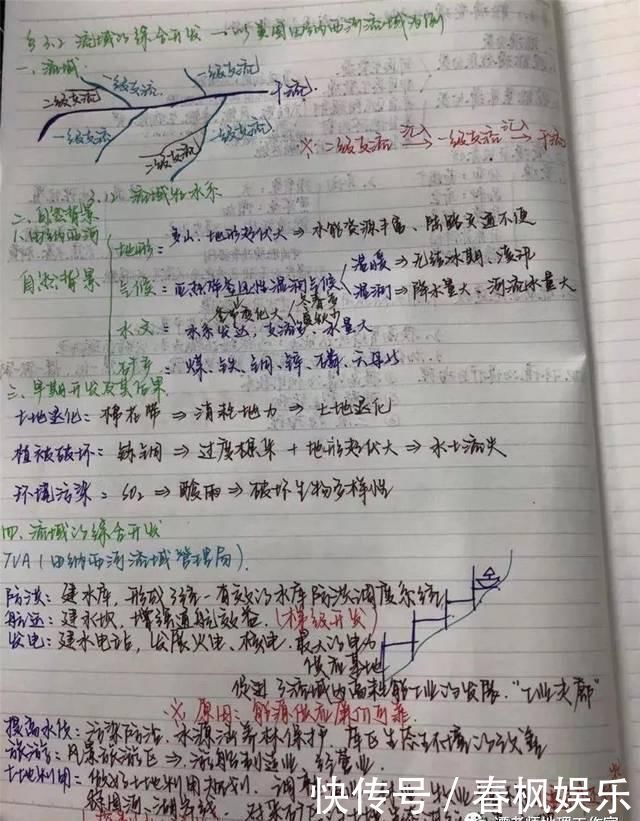 §3.2 流域的综合开发——以美国田纳西河流域为例
一、流域
一级支流 一级支流
二级支流 干流
一级支流 二级支流 一级支流
※二级支流 汇入→ 一级支流 汇入→ 干流
流域和水系
二、自然背景
1、田纳西河
自然背景
地形：多山、地形起伏大⇒水能资源丰富、陆路交通不便
气候：亚热带季风性湿润气候
温暖⇒无结冰期、凌汛
湿润⇒降水量大、河流水量大
水文：水系发达，支流多，水量大
季节变化大 冬春多 夏秋少
矿产：煤、铁、铜、锌、磷、云母
三、早期开发及其后果
土地退化：棉花带⇒消耗地力⇒土地退化
植被破坏：炼铜⇒过度樵采+地形起伏大⇒水土流失
环境污染：SO₂⇒酸雨⇒破坏生物多样性
四、流域的综合开发
TVA（田纳西河流域管理局）
防洪：建水库，形成了统一有效的水库防洪调度系统
航运：建水坝，增强通航效益（梯级开发）
发电：建水电站，发展火电、核电，最大的电力
供应基地
促进了流域内高耗能工业的发展，“工业走廊”
※原因：能源供应廉价可靠
提高水质：污染防治、水源涵养林保护、库区生态环境的改善
旅游：风景旅游区⇒游船制造业、经营业
土地利用：做好土地利用规划，调
快传号／春枫娱乐